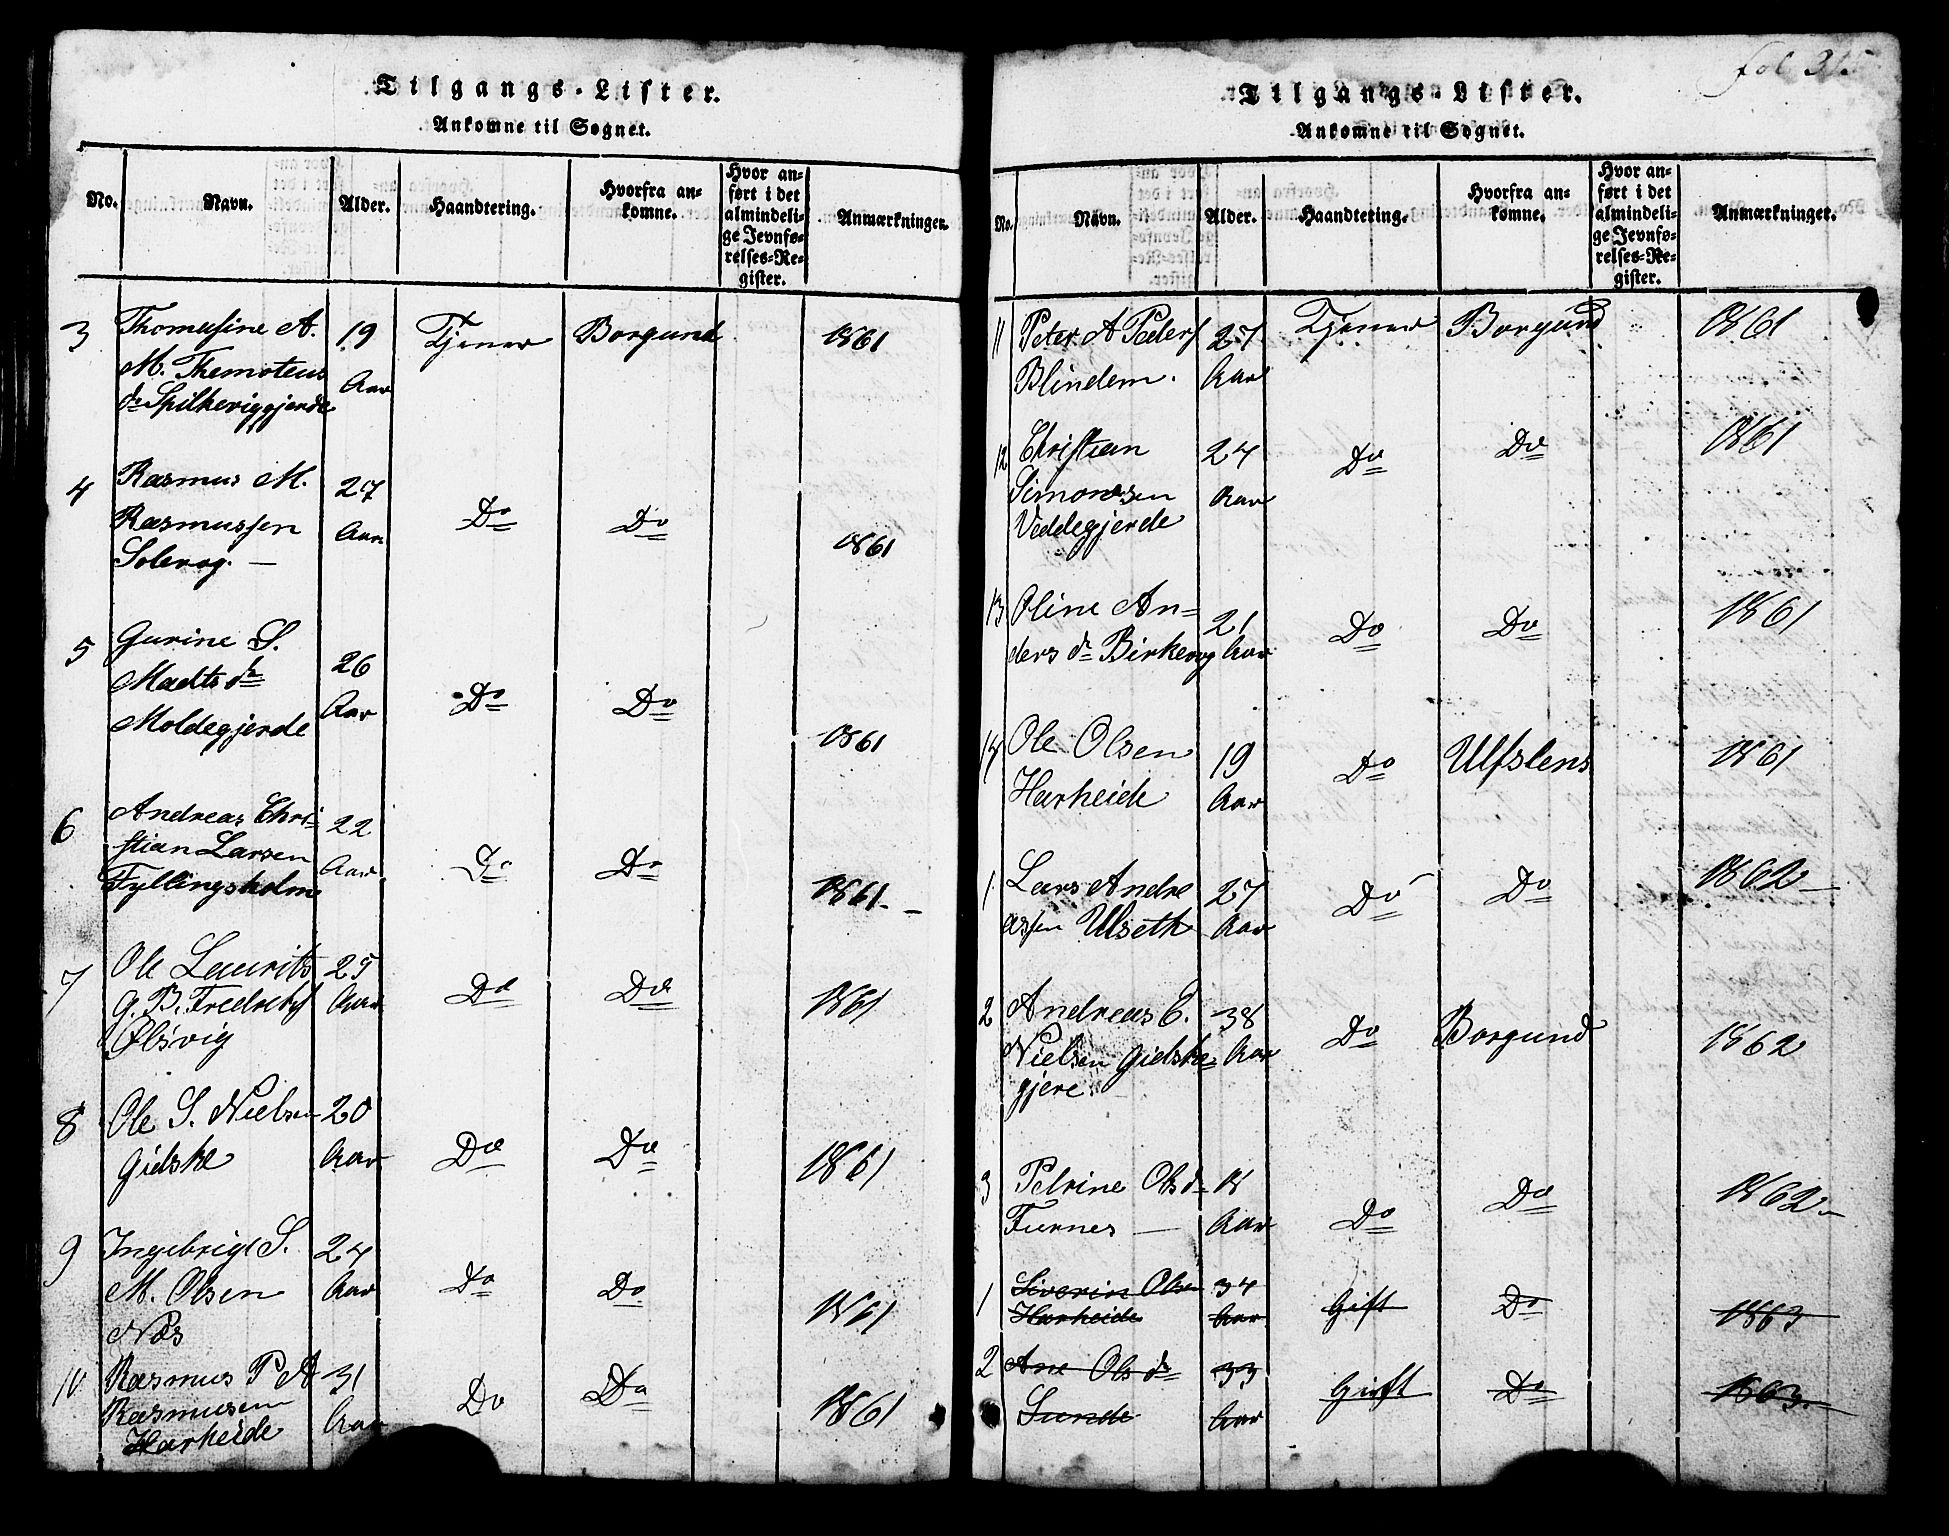 Tilgangs-Lister.
Ankomne til Sognet.
No. Navn. Alder. Haandtering. Hvorfra ankomne. Hvor anført i det almindelige Jevnførelses-Register. Anmærkninger.
3 Thomasine A. 19 Tjener Borgund 1861
M. Themoteus Aar
dr Spilkeviggjerde
4 Rasmus M. 27 Do Do 1861
Rasmussen Aar
Solevog. —
5 Gurine S. 26 Do Do 1861
Madts dr Aar
Moldegjerde
6 Andreas Chri- 22 Do Do 1861. –
stian Larsen Aar
Fyllingsholm
7 Ole Laurits 25 Do Do 1861
G. B. Fredreks Aar
Ølsvig
8 Ole S. Nielsen 20 Do Do 1861
Gidske Aar
9 Ingebrigt S. 24 Do Do 1861
M. Olsen Aar
Næs
10 Rasmus P A 31 Do Do 1861
Rasmusen Aar
Harheide
fol 315
Tilgangs-Lister.
Ankomne til Sognet.
No. Navn. Alder. Haandtering. Hvorfra ankomne. Hvor anført i det almindelige Jevnførelses-Register. Anmærkninger.
11 Peter A Peders 27 Tjener Borgund 1861
Blindem. Aar
12 Christian 24 Do Do 1861
Simonsen Aar
Veddegjerde
13 Oline An= 21 Do Do 1861
ders dr Birkevog Aar
14 Ole Olsen 19 Do Ulfstens 1861
Harheide Aar
1 Lars Andre 27 Do Do 1862 –
assen Ulseth Aar
2 Andreas E. 38 Do Borgund 1862
Nielsen Gidske= Aar
gjere
3 Petrine Olsdr 18 Do Do 1862 –
Furnes — Aar
1 Siverin Olsen 34 Gift Do 1863
Harheide Aar
2 Ane Ols dr 33 Gift Do 1863. –
Sunde Aar